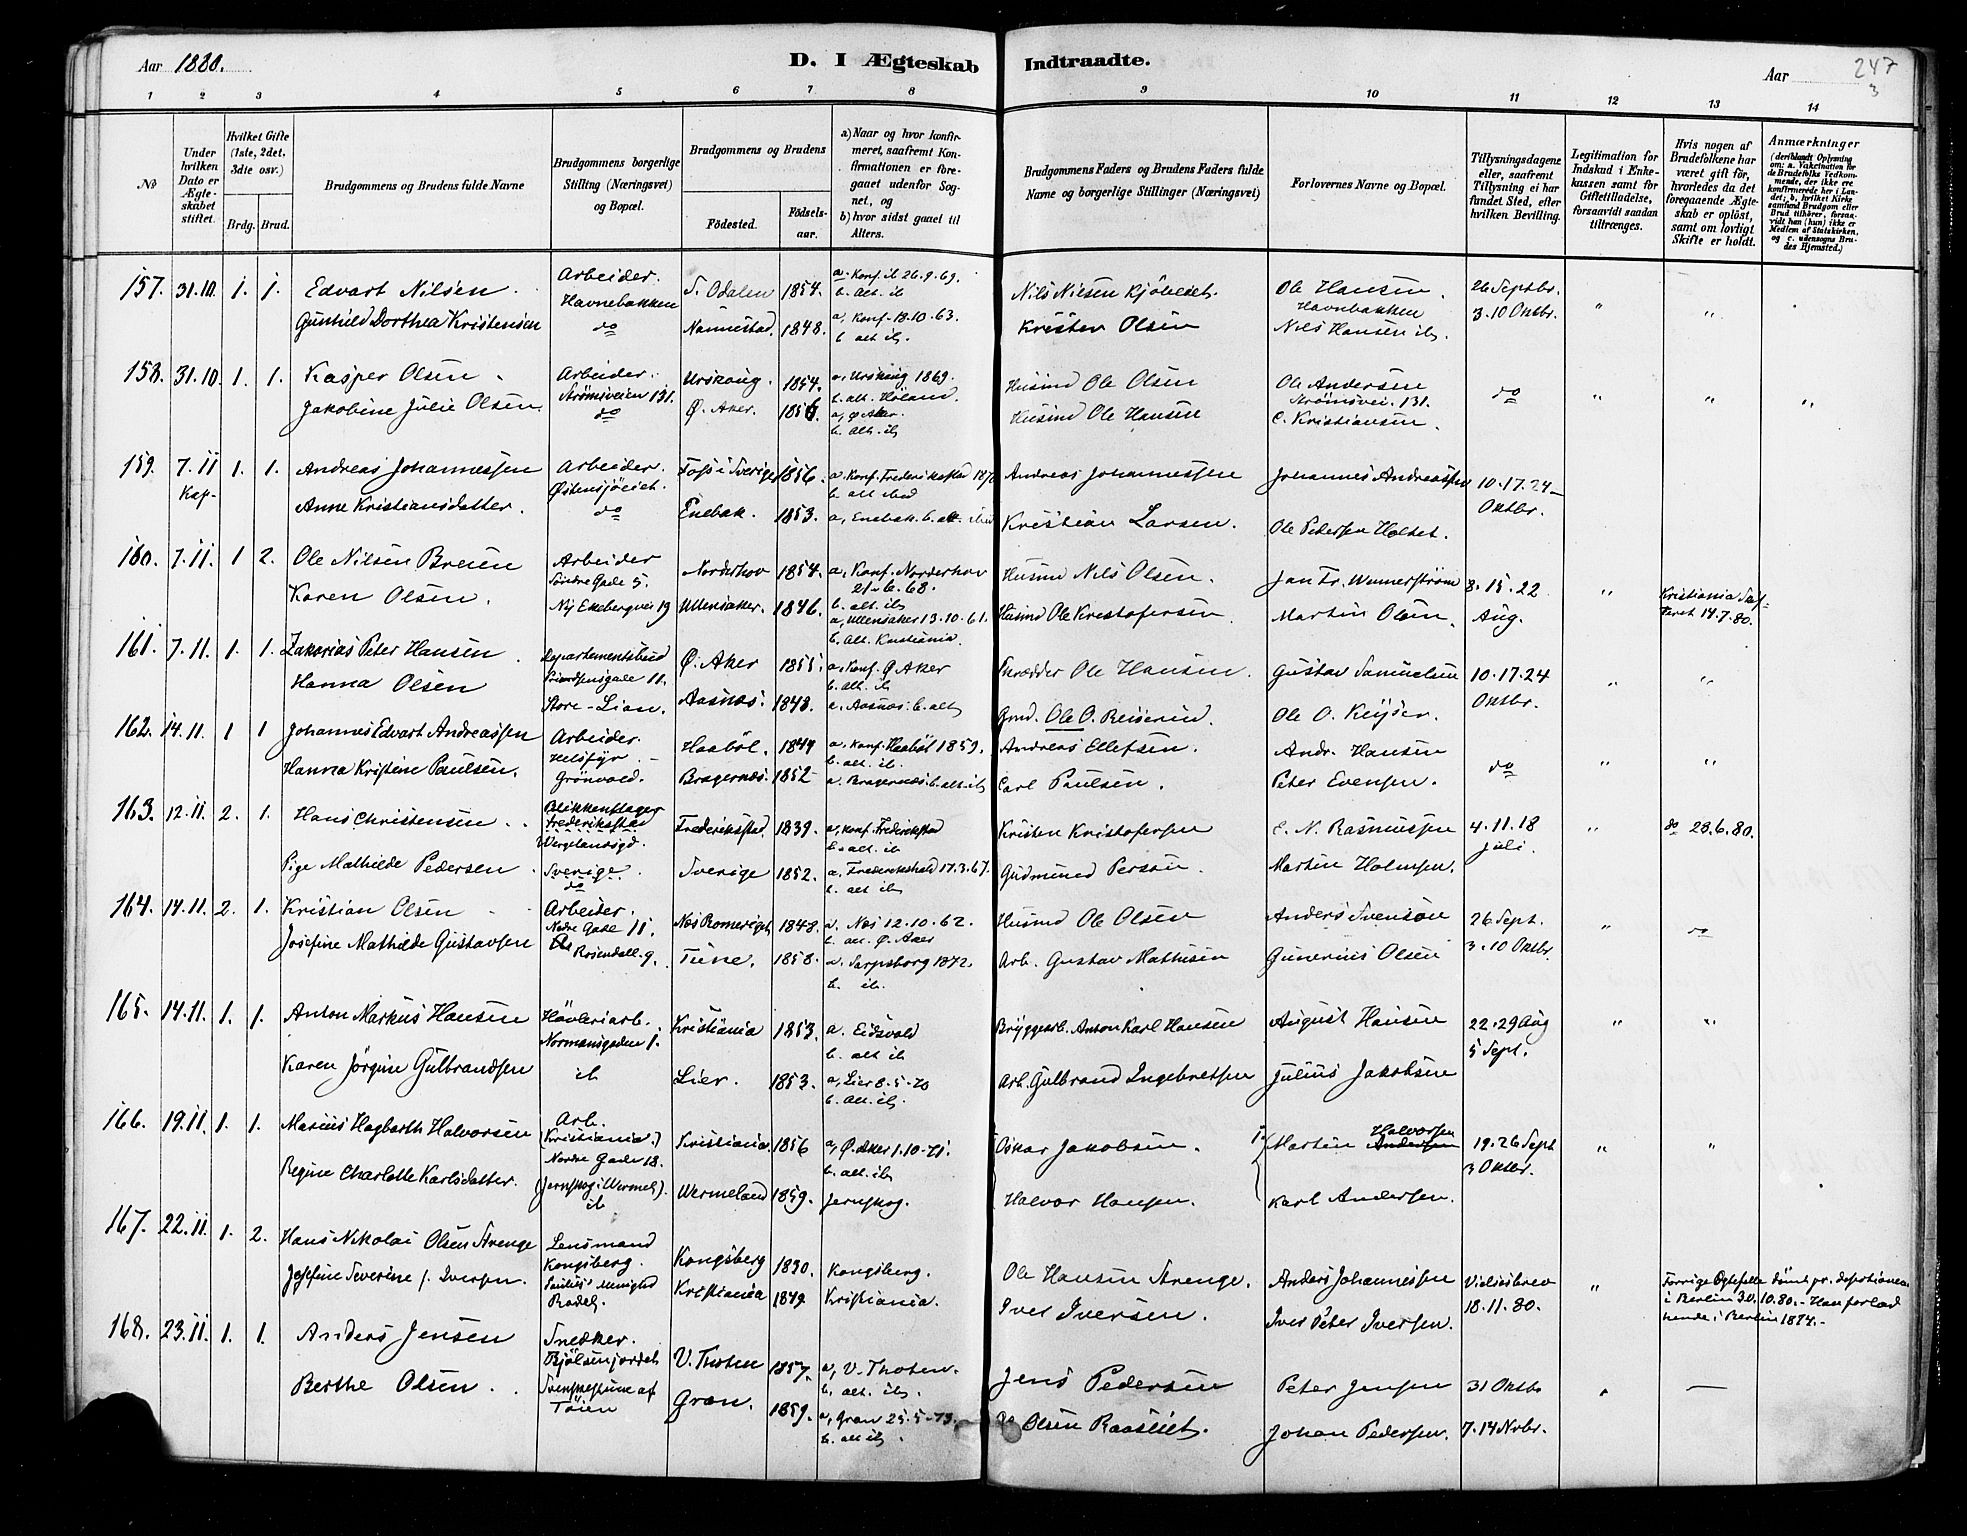 Aar 1880.
D. I Ægteskab Indtraadte.
Aar
247
3
1 2 3 4 5 6 7 8 9 10 11 12 13 14
No
Under hvilken Dato er Ægteskabet stiftet.
Hvilket Gifte (1ste, 2det, 3die osv.)
Brdg. Brud.
Brudgommens og Brudens fulde Navne
Brudgommens borgerlige Stilling (Næringsvei) og Bopæl.
Brudgommens og Brudens
Fødested.
Fødselsaar.
a) Naar og hvor konfirmeret, saafremt Konfirmationen er foregaaet udenfor Sognet, og
b) hvor sidst gaaet til Alters.
Brudgommens Faders og Brudens Faders fulde Navne og borgerlige Stillinger (Næringsvei)
Forlovernes Navne og Bopæl.
Tillysningsdagene eller, saafremt Tillysning ei har fundet Sted, efter hvilken Bevilling.
Legitimation for Indskud i Enkekassen samt for Giftetilladelse, forsaavidt saadan tiltrænges.
Hvis nogen af Brudefolkene har været gift før, hvorledes da det foregaaende Ægteskab er opløst, samt om lovligt Skifte er holdt.
Anmærkninger
(deriblandt Oplysning om: a. Vakcination for de Brudefolks Vedkommende, der ikke ere konfirmerede her i Landet; b. hvilket Kirkesamfund Brudgom eller Brud tilhører, forsaavidt han (hun) ikke er Medlem af Statskirken, og c. udensogns Brudes Hjemsted.)
157. 31.10. 1. 1. Edvart Nilsen. Arbeider. Havnebakken S. Odalen 1854. a. Konf. ib 26.9.69. b. Alt. ib Nils Nilsen Kjöbelset. Ole Hansen. Havnbakken 26 Septbr. 3.10 Oktbr. " " "
Gunhild Dorthea Kristensen do Nannestad. 1848. a, Konf. 18.10.63. b. alt ib. Kristen Olsen Nils Hansen ib.
158. 31.10. 1. 1. Kasper Olsen. Arbeider. Strömsveien 131. Urskoug. 1854. a, Urskoug 1869. b. alt. Höland. Husmd Ole Olsen Ole Andersen Strömsvei. 131. do " " "
Jakobine Julie Olsen. do Ø. Aker. 1856 a, Ø Aker. b. Alt. ib Husmd Ole Hansen C. Kristiansen.
159. 7.11 Kap- 1. 1. Andreas Johannessen Arbeider. Østensjöeiet. Foss i Sverige 1856. a. Konf. Frederikstad 187 b. alt ibid Andreas Johannessen Johannes Andreassen 10.17.24 Oktbr.
Anne Kristiansdatter. do Enebak. 1853. a, Enebak. b. alt. ibid Kristian Larsen. Ole Pedersen Holset.
160. 7.11. 1 2. Ole Nilsen Breien Arbeider Söndre Gade 5. Norderhov 1854. a, Konf. Norderhov 21.6.68. b. alt. ib Husmd Nils Olsen. Jan Fr. Wennerström 8.15.22 Aug. " Kristiania 14.7.80.
Karen Olsen. Ny Ekebergvei 19 Ullensaker. 1846. a, Ullensaker 13.10.61. b. Alt. Kristiania. Husmd Ole Kristofersen Martin Olsen.
161. 7.11. 1. 1. Zakarias Peter Hansen Departementsbud 11. Ø. Aker 1855. a. Konf. Ø Aker b. alt. ib Skrædder Ole Hansen. Gustav Samuelsen 10.17.24 Oktbr. " "
Hanna Olsen Store-Lian. Aasnæs. 1848. a. Aasnæs. b. alt Gmd. Ole O. Ole O. Keyser.
162. 14.11. 1 1 Johannes Edvart Andreassen Arbeider. Helsfyr. Haaböl. 1844 a. Konf. Haaböl 1859. b. alt. ib. Andreas Ellefsen. Andr. Hansen do " "
Hanna Kristine Paulsen. Grönvold. Bragernæs. 1852 a. Bragernæs. b. alt. ib Carl Paulsen. Peter Evensen.
163. 12.11. 2. 1. Hans Christensen. Blikkenslager Frederikstad Frederikstad. 1839. a, Konf. Frederikstad b. alt. ib Kristen Kristofersen E. N. Rasmussen 4.11.18 Juli. " do 28.6.80.
Pige Mathilde Pedersen. Sverige. do Sverige 1852. a, Frederikshald 17.3.67. b. alt ib Gudmund Person. Martin Holmsen.
164. 14.11. 2. 1. Kristian Olsen Arbeider. Nedre Gade 11. Næs Romerige 1848. a. Næs 12.10.62. b. alt. Ø. Aker Husmd Ole Olsen Anders Svenson 26 Sept. 3.10 Oktbr. " do
Josefine Mathilde Gustavsen Rosendall. 9. Tune. 1858. a. Sarpsborg 1872. b. ib. Arb. Gustav Mathisen Gunerius Olsen
165. 14.11. 1. 1. Anton Markus Hansen Hövleriarb. Normansgaden 1. Kristiania 1853. a. Eidsvold b. alt ib Bryggearb. Anton Karl Hansen August Hansen 22.29 Aug 5 Sept. " "
Karen Jörgine Gulbrandsen ib Lier. 1853. a, Lier 8.5.70 b. Alt. ib. Arb. Gulbrand Ingebretsen Julius Jakobsen
166. 19.11. 1. 1. Marius Hagbarth Halvorsen Arb. (Kristiania.) Nordre Gade 18. Kristiania 1856 a, Ø. Aker 1.10.71. b. alt. ib. Oskar Jakobsen. Martin Halvorsen Andersen 19.26 Sept 3 Oktbr. " "
Regine Charlotte Karlsdatter. (Jernskog i Wermel.) ib Wermeland 1859. Jernskog. Halvor Hansen. Karl Andersen.
167. 22.11. 1. 2. Hans Nikolai Olsen Strenge Lensmand Kongsberg. Kongsberg 1830. Kongsberg. Ole Hansen Strenge. Anders Johannessen Vielsesbrev 18.11.80. " Forrige Ægtefelle dömt pr. i Berlin 30.10.80. - Han forlod hende i Berlin 1874.-
Josefine Severine f. Iversen. Kristiania 1849 Kristiania. Iver Iversen. Iver Peter Iversen.
168. 23.11. 1. 1. Anders Jensen Snedker. Bjölsenjordet V. Thoten 1857. a, V. Thoten. b. alt. ib. Jens Pedersen Peter Jensen 31 Oktbr 7.14 Nvbr. " —
Berthe Olsen. Töien Gran. 1859. a, Gran 25.5.73. b. alt ib. Olsen Johan Pedersen.